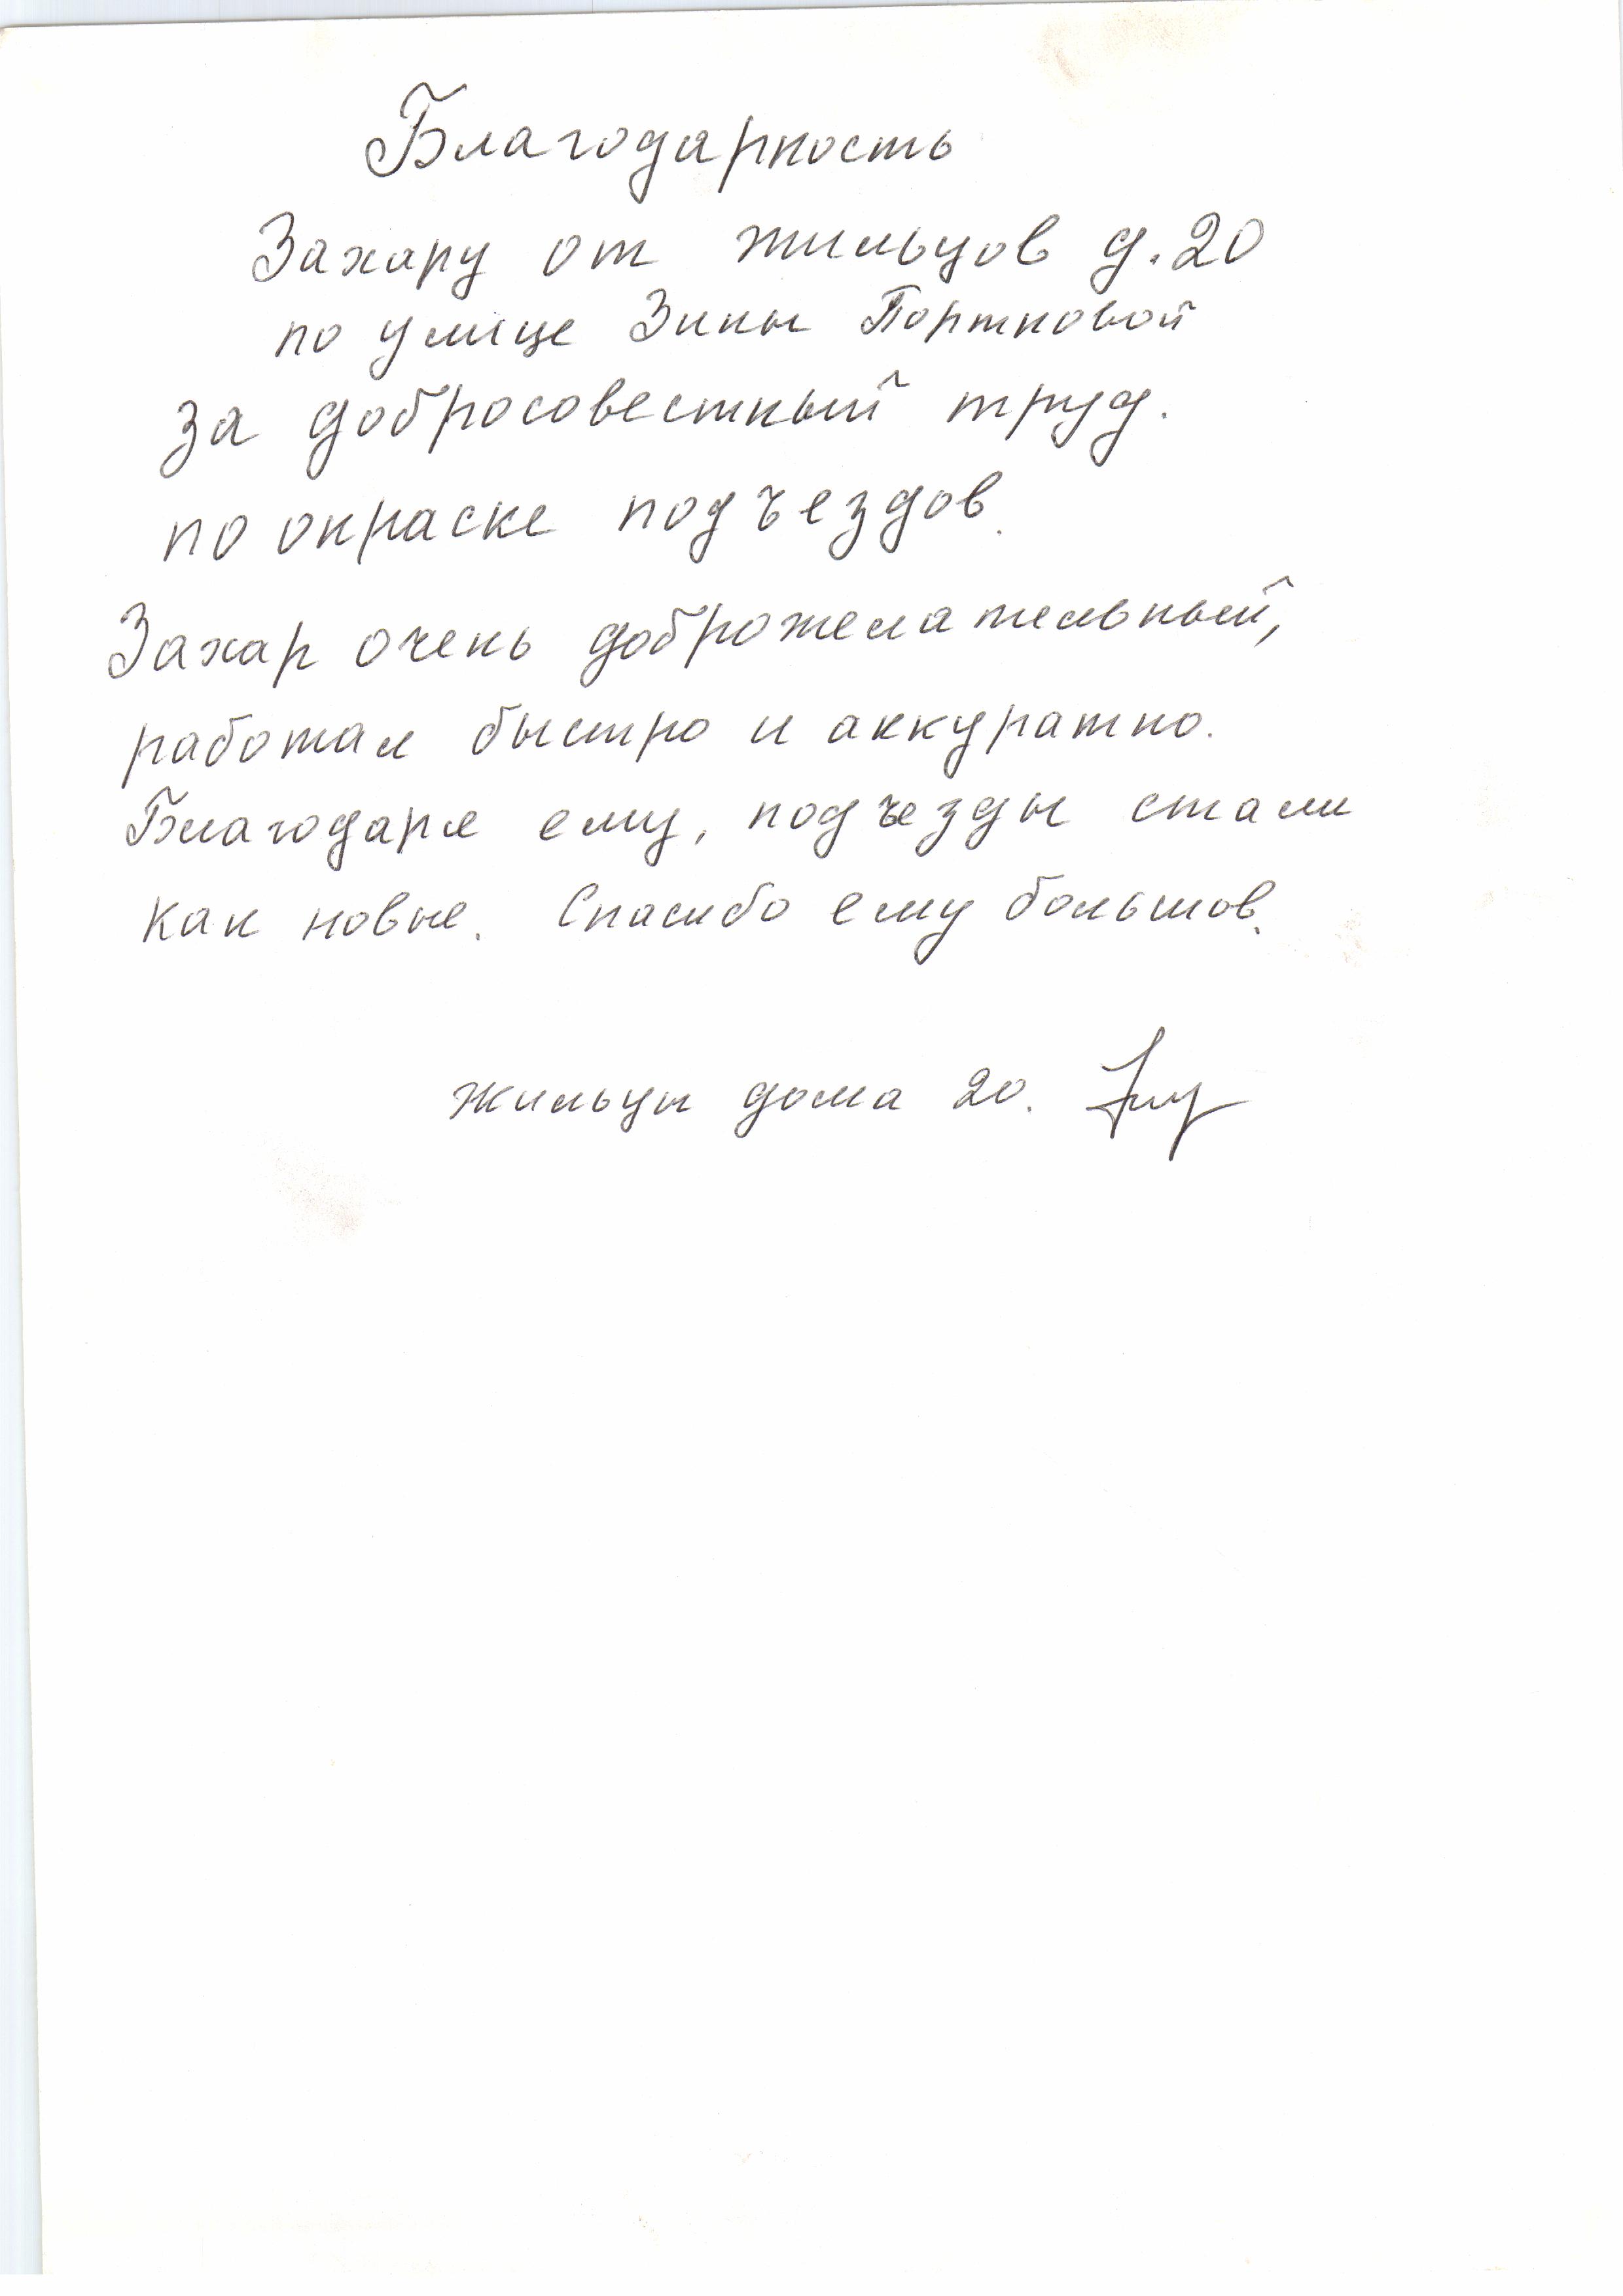 Благодарность
Захару от жильцов д. 20
по улице Зины Портновой
за добросовестный труд.
по окраске подъездов.
Захар очень доброжелательный,
работал быстро и аккуратно.
Благодаря ему, подъезды стали
как новые. Спасибо ему большое.
жильцы дома 20.